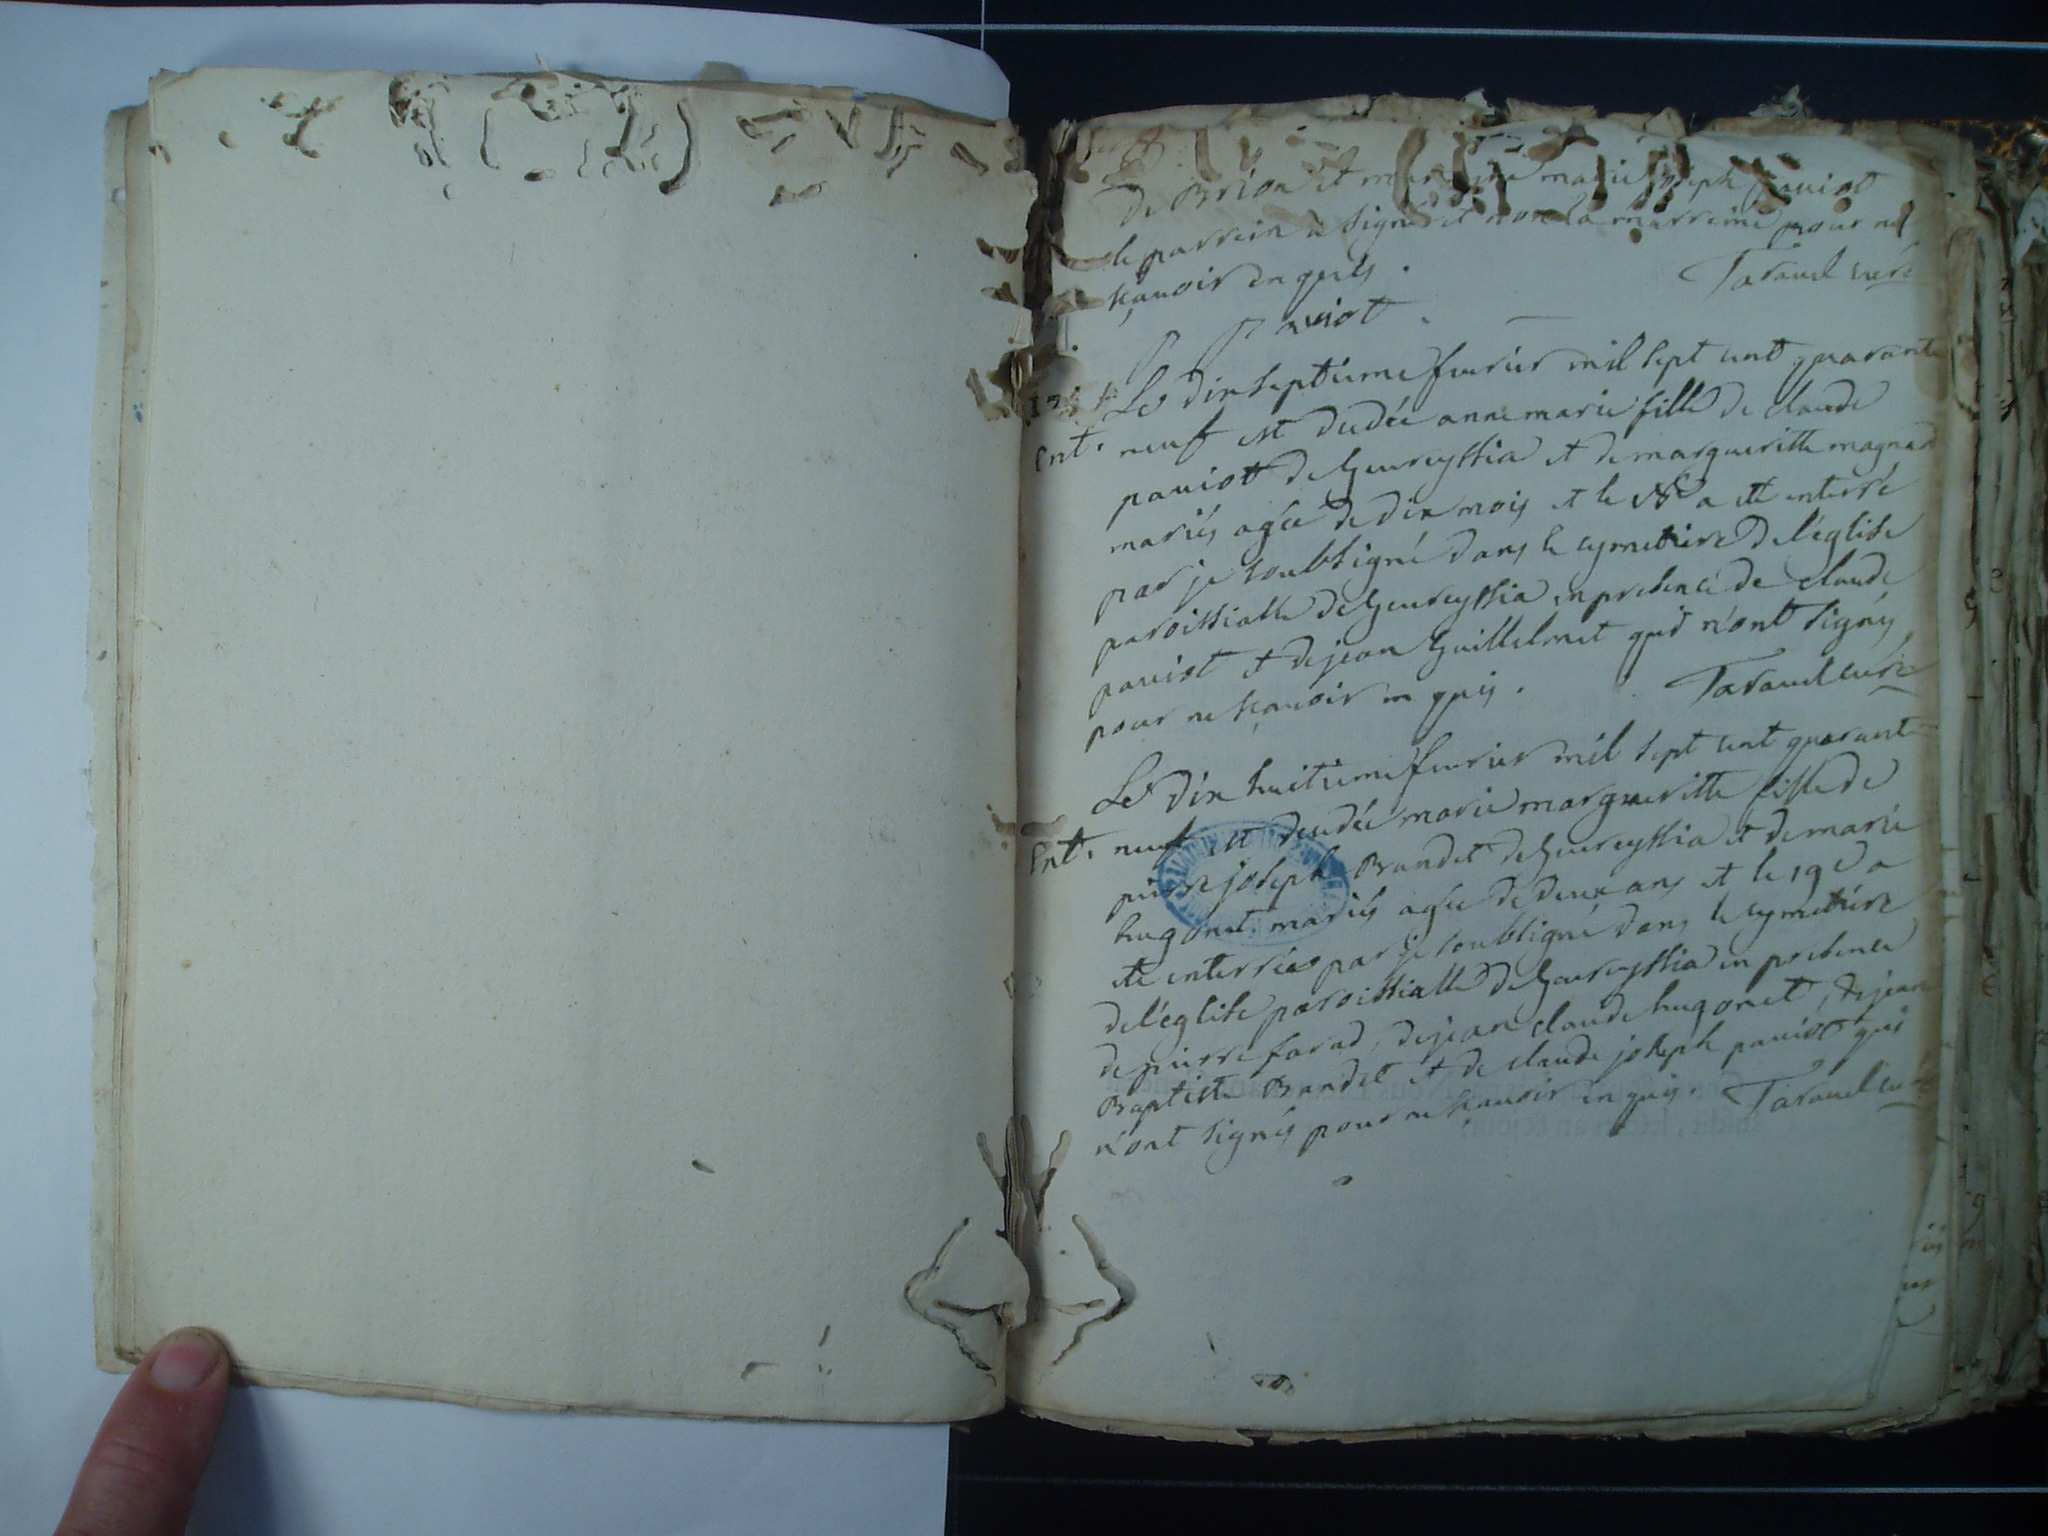 de Brion et marraine marie joseph paviot
le parrein a signé et non la marreine pour ne
sçavoir enquis.
Taravel curé
P Paviot
Le dixseptieme fevrier mil sept cent quarante
Ent. neuf est decedée anne marie fille de claude
paviot de Geureyssia et de margueritte magnin
mariés agée de dix mois et le 18e a ete enterré
par je soubsigné dans le cymetiere de l'église
paroissialle de Geureyssia en presence de claude
paviot et de jean Guillelmet qui n'ont signés
pour ne sçavoir enquis.
Taravel curé
Le dix huitieme fevrier mil sept cent quarante
Ent. neuf est decedée marie margueritte fille de
pierre joseph Brandet de Geureyssia et de marie
hugonet mariés agée de deux ans et le 19e a
ete enterrée par je soubsigné dans le cymetiere
de l'église paroissialle de Geureyssia en presence
de pierre farad, de jean claude hugonet, de jean
Baptiste Brandet et de claude joseph paviot qui
n'ont signés pour ne sçavoir enquis. Taravel curé